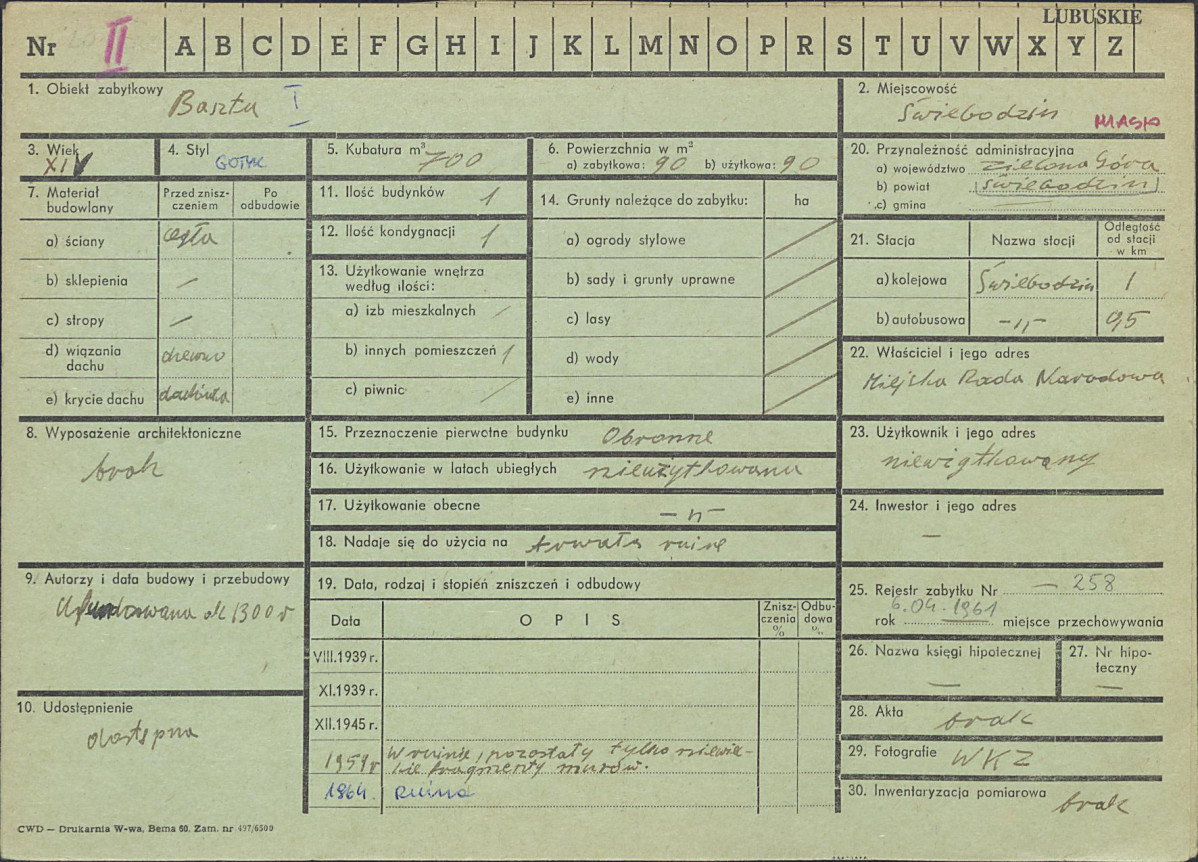 LUBUSKIE
Nr II A B C D E F G H I J K L M N O P R S T U V W X Y Z
1. Obiekt zabytkowy Baszta I
2. Miejscowość Świebodzin MIASTO
3. Wiek XIV
4. Styl GOTYK
5. Kubatura m³ 700
6. Powierzchnia w m²
a) zabytkowa: 90 b) użytkowa: 90
20. Przynależność administracyjna
a) województwo Zielona Góra
b) powiat (Świebodzin)
c) gmina
7. Materiał budowlany
Przed znisz-
czeniem
Po
odbudowie
a) ściany cegła
b) sklepienia —
c) stropy —
d) wiązania
dachu drewno
e) krycie dachu dachówka
11. Ilość budynków 1
12. Ilość kondygnacji 1
13. Użytkowanie wnętrza
według ilości:
a) izb mieszkalnych /
b) innych pomieszczeń 1
c) piwnic /
14. Grunty należące do zabytku: ha
a) ogrody stylowe
b) sady i grunty uprawne
c) lasy
d) wody
e) inne
21. Stacja
Nazwa stacji
Odległość
od stacji
w km
a) kolejowa Świebodzin 1
b) autobusowa —"— 0,5
22. Właściciel i jego adres
Miejska Rada Narodowa
8. Wyposażenie architektoniczne
brak
15. Przeznaczenie pierwotne budynku Obronne
16. Użytkowanie w latach ubiegłych nieużytkowana
17. Użytkowanie obecne —"—
18. Nadaje się do użycia na trwałą ruinę
23. Użytkownik i jego adres
24. Inwestor i jego adres
—
9. Autorzy i data budowy i przebudowy
Ufundowana ok 1300 r
19. Data, rodzaj i stopień zniszczeń i odbudowy
Data
OPIS
Znisz-
czenia
%
Odbu-
dowa
%
VIII.1939 r.
XI.1939 r.
XII.1945 r.
1959 r W ruinie, pozostały tylko niewiel-
kie fragmenty murów.
1964. Ruina
25. Rejestr zabytku Nr — 258
rok 6.04.1961 miejsce przechowywania
26. Nazwa księgi hipotecznej
—
27. Nr hipo-
teczny
—
10. Udostępnienie
dostępna
28. Akta brak
29. Fotografie WKZ
30. Inwentaryzacja pomiarowa brak
CWD — Drukarnia W-wa, Bema 60. Zam. nr 497/6500